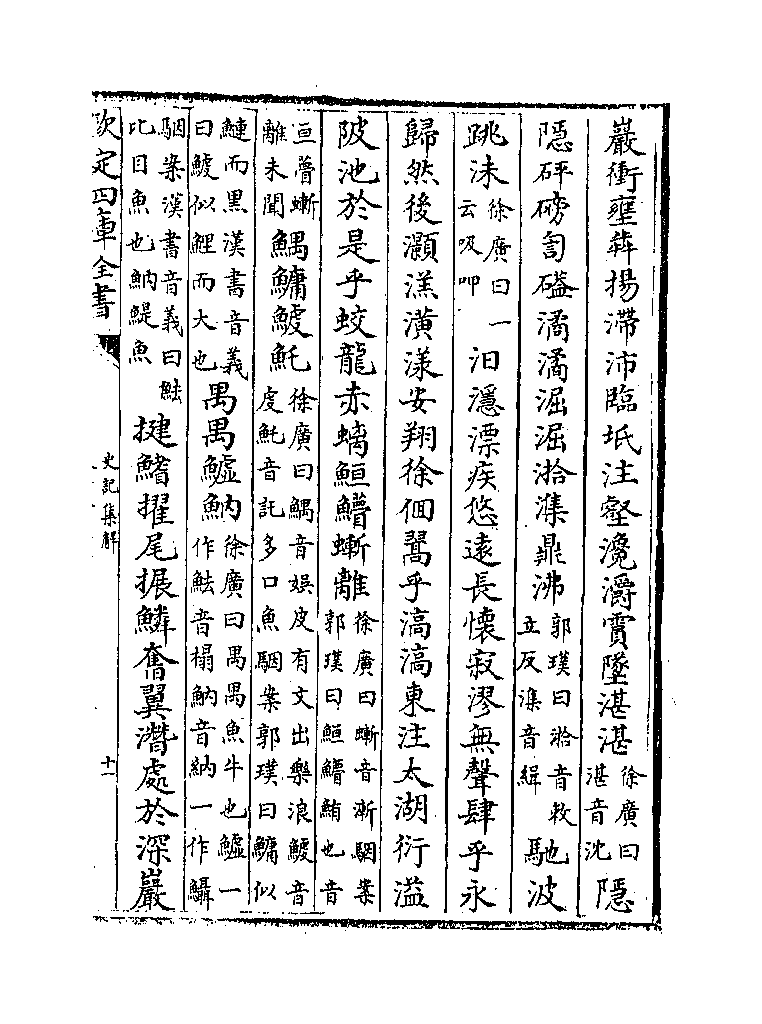 巖衝壅犇揚滯沛臨坻注壑瀺灂霣墜湛湛徐廣曰湛音沈隱
隱砰磅訇礚潏潏淈淈湁潗鼎沸郭璞曰湁音敕立反潗音緝馳波
跳沫徐廣曰一云吸呷汩㶏漂疾悠遠長懷寂漻無聲肆乎永
歸然後灝溔潢漾安翔徐佪翯乎滈滈東注太湖衍溢
陂池於是乎蛟龍赤螭䱭䲛螹離徐廣曰螹音漸駰案郭璞曰䱭䲛鮪也音
亘瞢螹離未聞鰅鱅鰬魠徐廣曰鰅音娛皮有文出樂浪鰬音虔魠音託多口魚駰案郭璞曰鱅似
鰱而黑漢書音義曰鰬似鯉而大也禺禺鱋魶徐廣曰禺禺魚牛也鱋一作魼音榻魶音納一作鰨
駰案漢書音義曰魼比目魚也魶鯷魚揵鰭擢尾振鱗奮翼潛處於深巖
欽定四庫全書
史記集解
十一